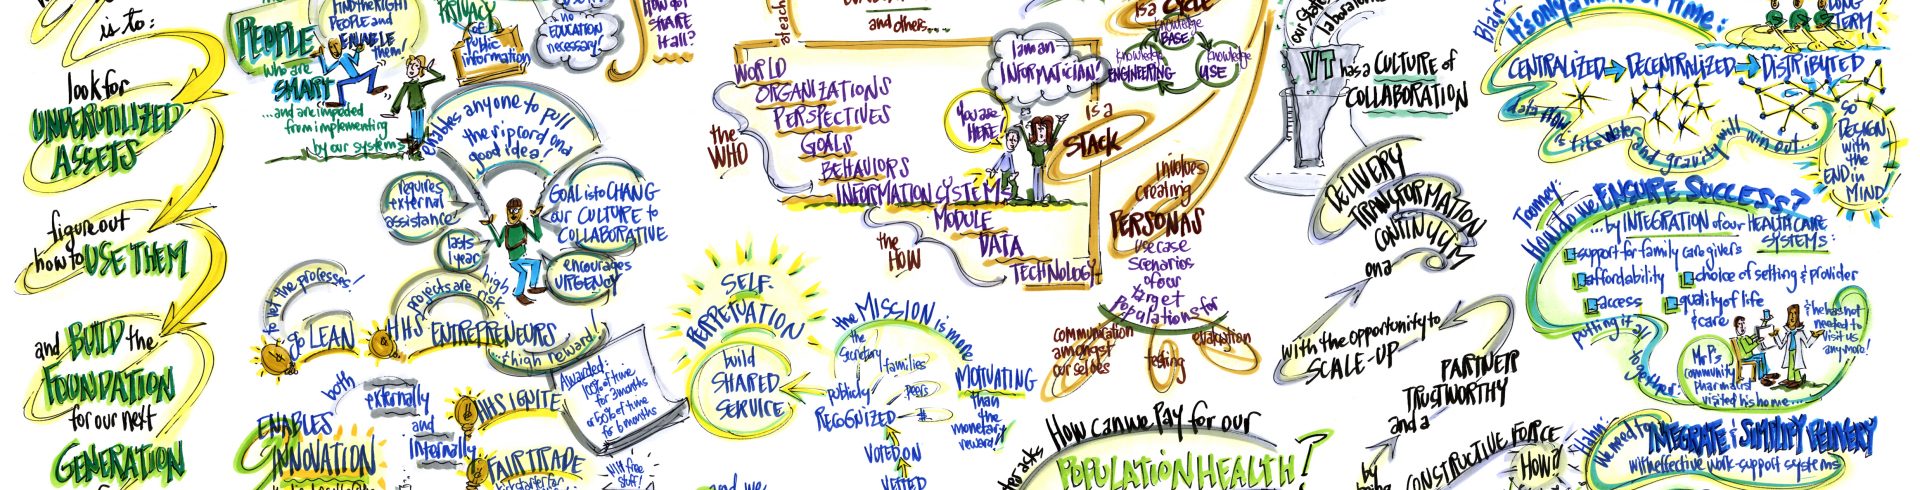 is to:
look for
UNDERUTILIZED
ASSETS
figure out
how to USE THEM
and BUILD the
FOUNDATION
for our next
GENERATION
FIND the RIGHT
PEOPLE and
ENABLE
them!
PEOPLE
who are
SMART
...and are impeded
from implementing
by our systems
PRIVACY
of
Public
information
no
EDUCATION
necessary!
HOW do I
SHARE
it all?
enables anyone to pull
the ripcord on a
good idea!
requires
external
assistance
GOAL is to CHANGE
our CULTURE to
COLLABORATIVE
lasts
1 year
encourages
URGENCY
high
projects are risk
...high reward!
to test the processes!
go LEAN
HHS ENTREPRENEURS
both
externally
and
Internally
ENABLES
INNOVATION
HHS IGNITE
FAIR TRADE
Awarded:
10% of time
for 3 months
or 50% of time
for 6 months
and others...
WORLD
ORGANIZATIONS
PERSPECTIVES
GOALS
BEHAVIORS
INFORMATION SYSTEM
MODULE
DATA
TECHNOLOGY
the
WHO
the
HOW
I am an
INFORMATICIAN!
You are
HERE!
is a
CYCLE
knowledge
BASE
knowledge
ENGINEERING
knowledge
USE
is a
STACK
involves
creating
PERSONAS
use case
scenarios
of our
target
populations for
communication
amongst
ourselves
testing
evaluation
SELF-
PERPETUATION
build
SHARED
SERVICE
the MISSION is more
MOTIVATING
than
the
monetary
reward!
the
Secretary
families
publicly
peers
RECOGNIZED
$
VOTED ON
VETTED
and we
How can we PAY for our
POPULATION HEALTH?
VT has a CULTURE of
COLLABORATION
DELIVERY
TRANSFORMATION
CONTINUUM
on a
with the opportunity to
SCALE-UP
PARTNER
TRUSTWORTHY
and a
CONSTRUCTIVE FORCE
by
HOW?
Blair:
It's only a matter of time:
LONG
TERM
CENTRALIZED → DECENTRALIZED → DISTRIBUTED
data flow
is like water
and gravity
will win out
SO
DESIGN
with
the
END in
MIND!
How do we ENSURE SUCCESS?
...by INTEGRATION of our HEALTH CARE
SYSTEMS:
support for family caregivers
affordability
choice of setting & provider
access
quality of life
& care
putting it all
together:
Mr P's
community
Pharmacist
visited his home...
& he has not
needed to
visit us
anymore!
we need to INTEGRATE & SIMPLIFY DELIVERY
with effective work-support systems